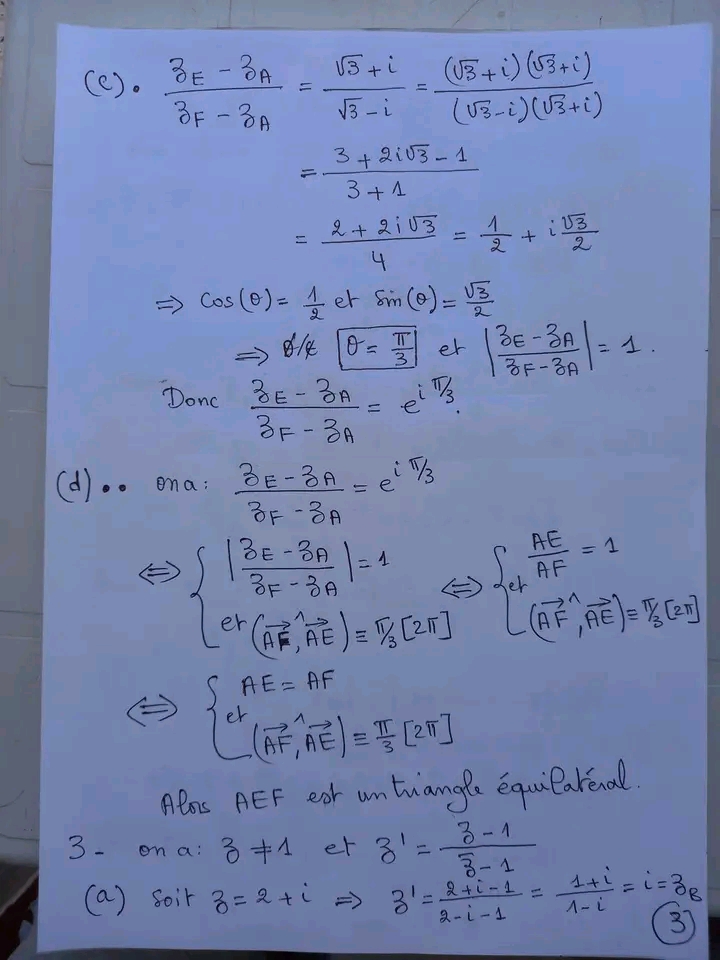 (c). (zE - zA)/(zF - zA) = (√3 + i)/(√3 - i) = ((√3 + i)(√3 + i))/((√3 - i)(√3 + i))
= (3 + 2i√3 - 1)/(3 + 1)
= (2 + 2i√3)/4 = 1/2 + i √3/2
⇒ cos(θ) = 1/2 et sin(θ) = √3/2
⇒ θ = π/3 et |(zE - zA)/(zF - zA)| = 1.
Donc (zE - zA)/(zF - zA) = e^(i π/3).
(d).. on a: (zE - zA)/(zF - zA) = e^(i π/3)
⇔ { |(zE - zA)/(zF - zA)| = 1 et (AF→ ^, AE→) ≡ π/3 [2π] ⇔ { AE/AF = 1 et (AF→ ^, AE→) ≡ π/3 [2π]
⇔ { AE = AF et (AF→ ^, AE→) ≡ π/3 [2π]
Alors AEF est un triangle équilatéral.
3- on a: z ≠ 1 et z' = (z - 1)/(z̄ - 1)
(a) soit z = 2 + i ⇒ z' = (2+i-1)/(2-i-1) = (1+i)/(1-i) = i = zB
3